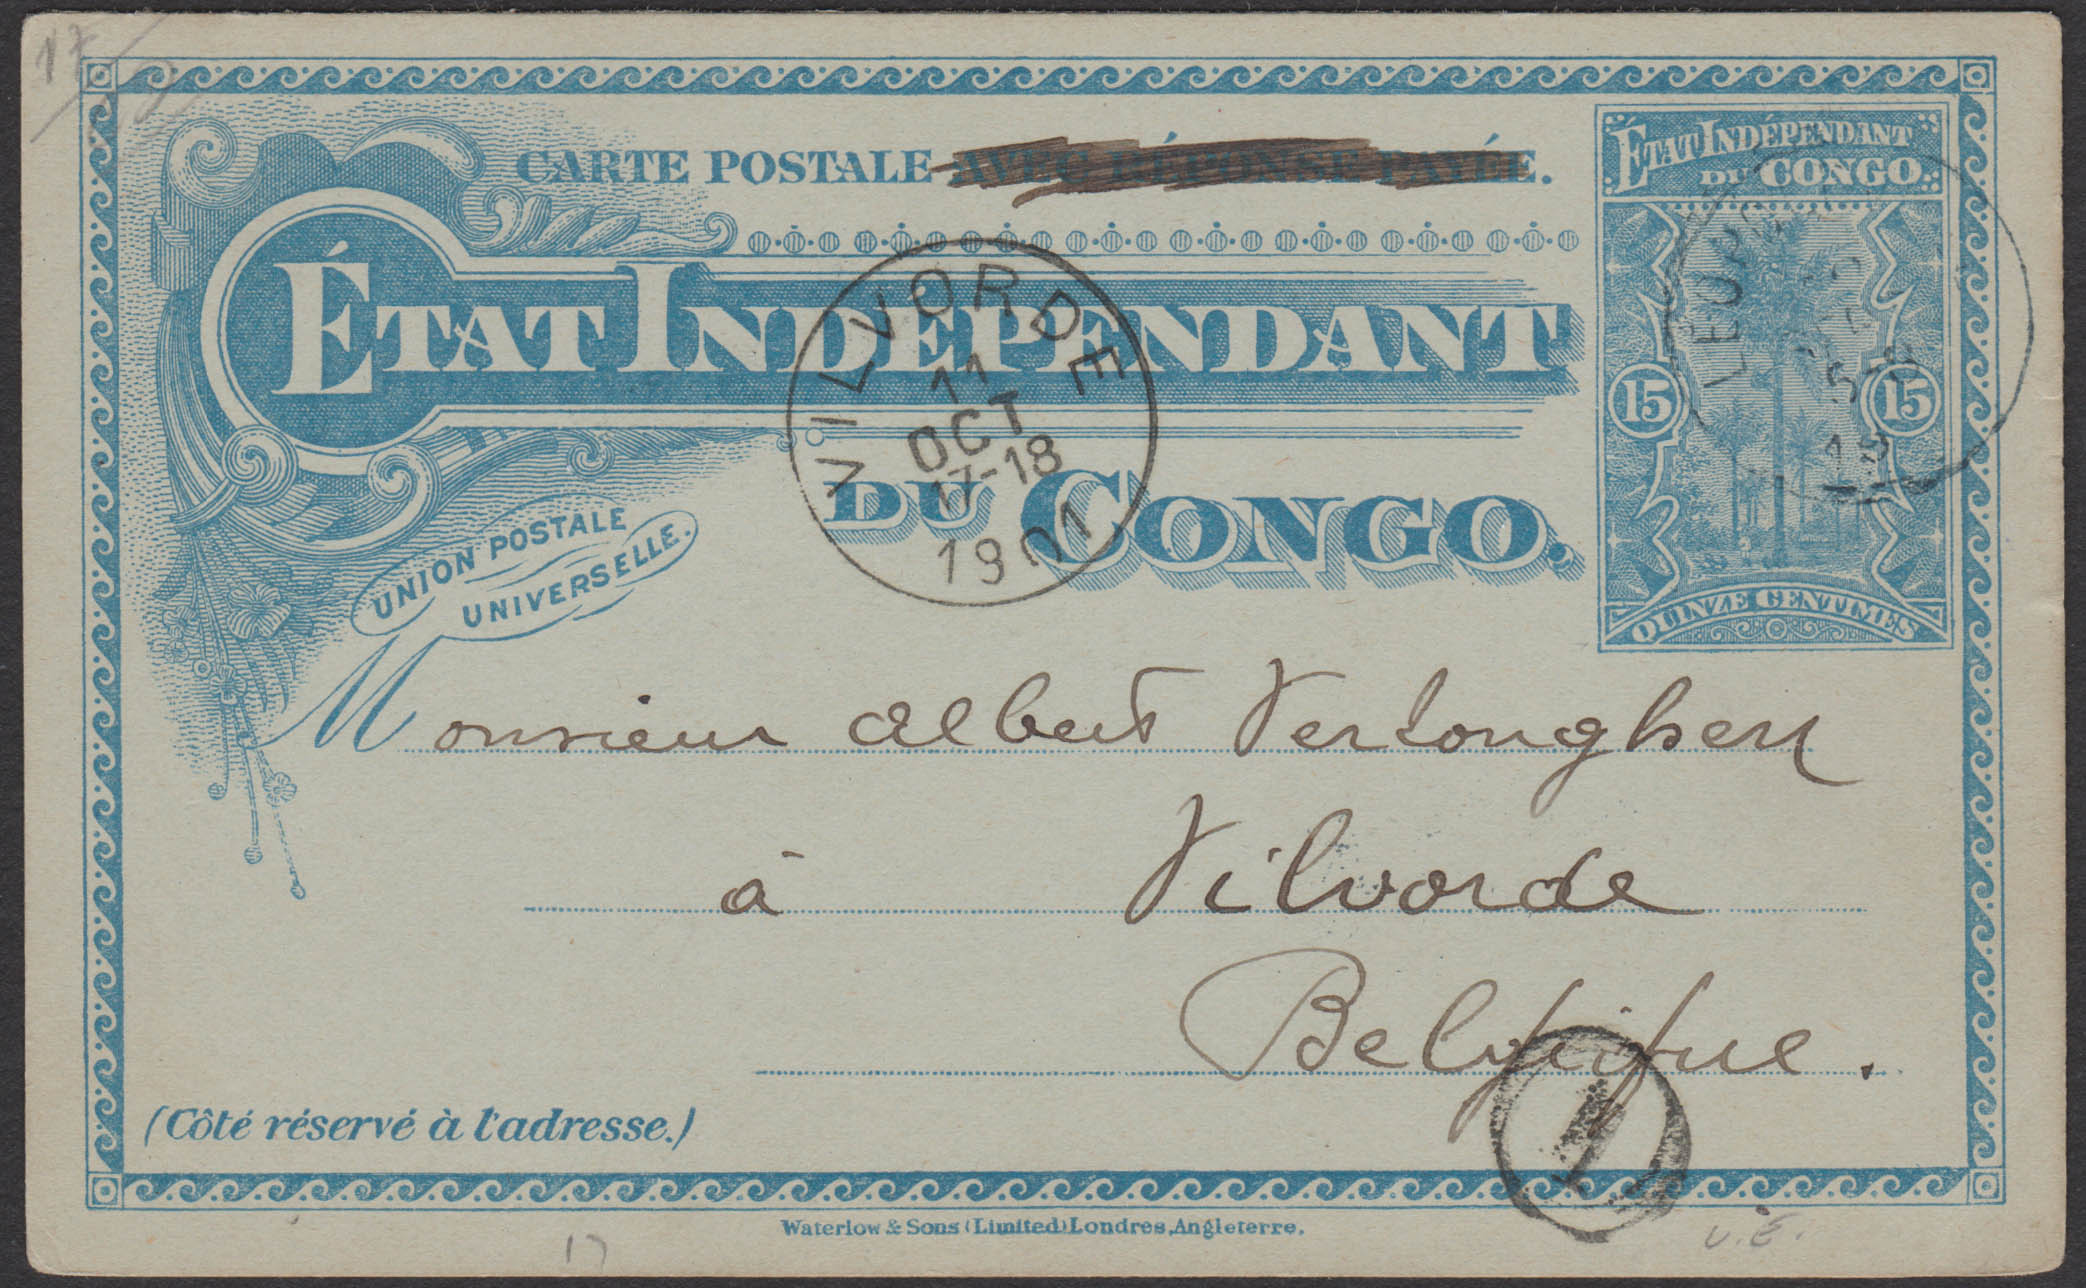 17
CARTE POSTALE AVEC RÉPONSE PAYÉE.
ÉTAT INDÉPENDANT
DU CONGO.
ÉTAT INDÉPENDANT
DU CONGO.
UNION POSTALE
UNIVERSELLE.
VILVORDE
11
OCT
17-18
1901
15
15
QUINZE CENTIMES
Monsieur Albert Vertonghen
à Vilvorde
Belgique.
(Côté réservé à l'adresse.)
1
Waterlow & Sons (Limited) Londres, Angleterre.
17
U.E.